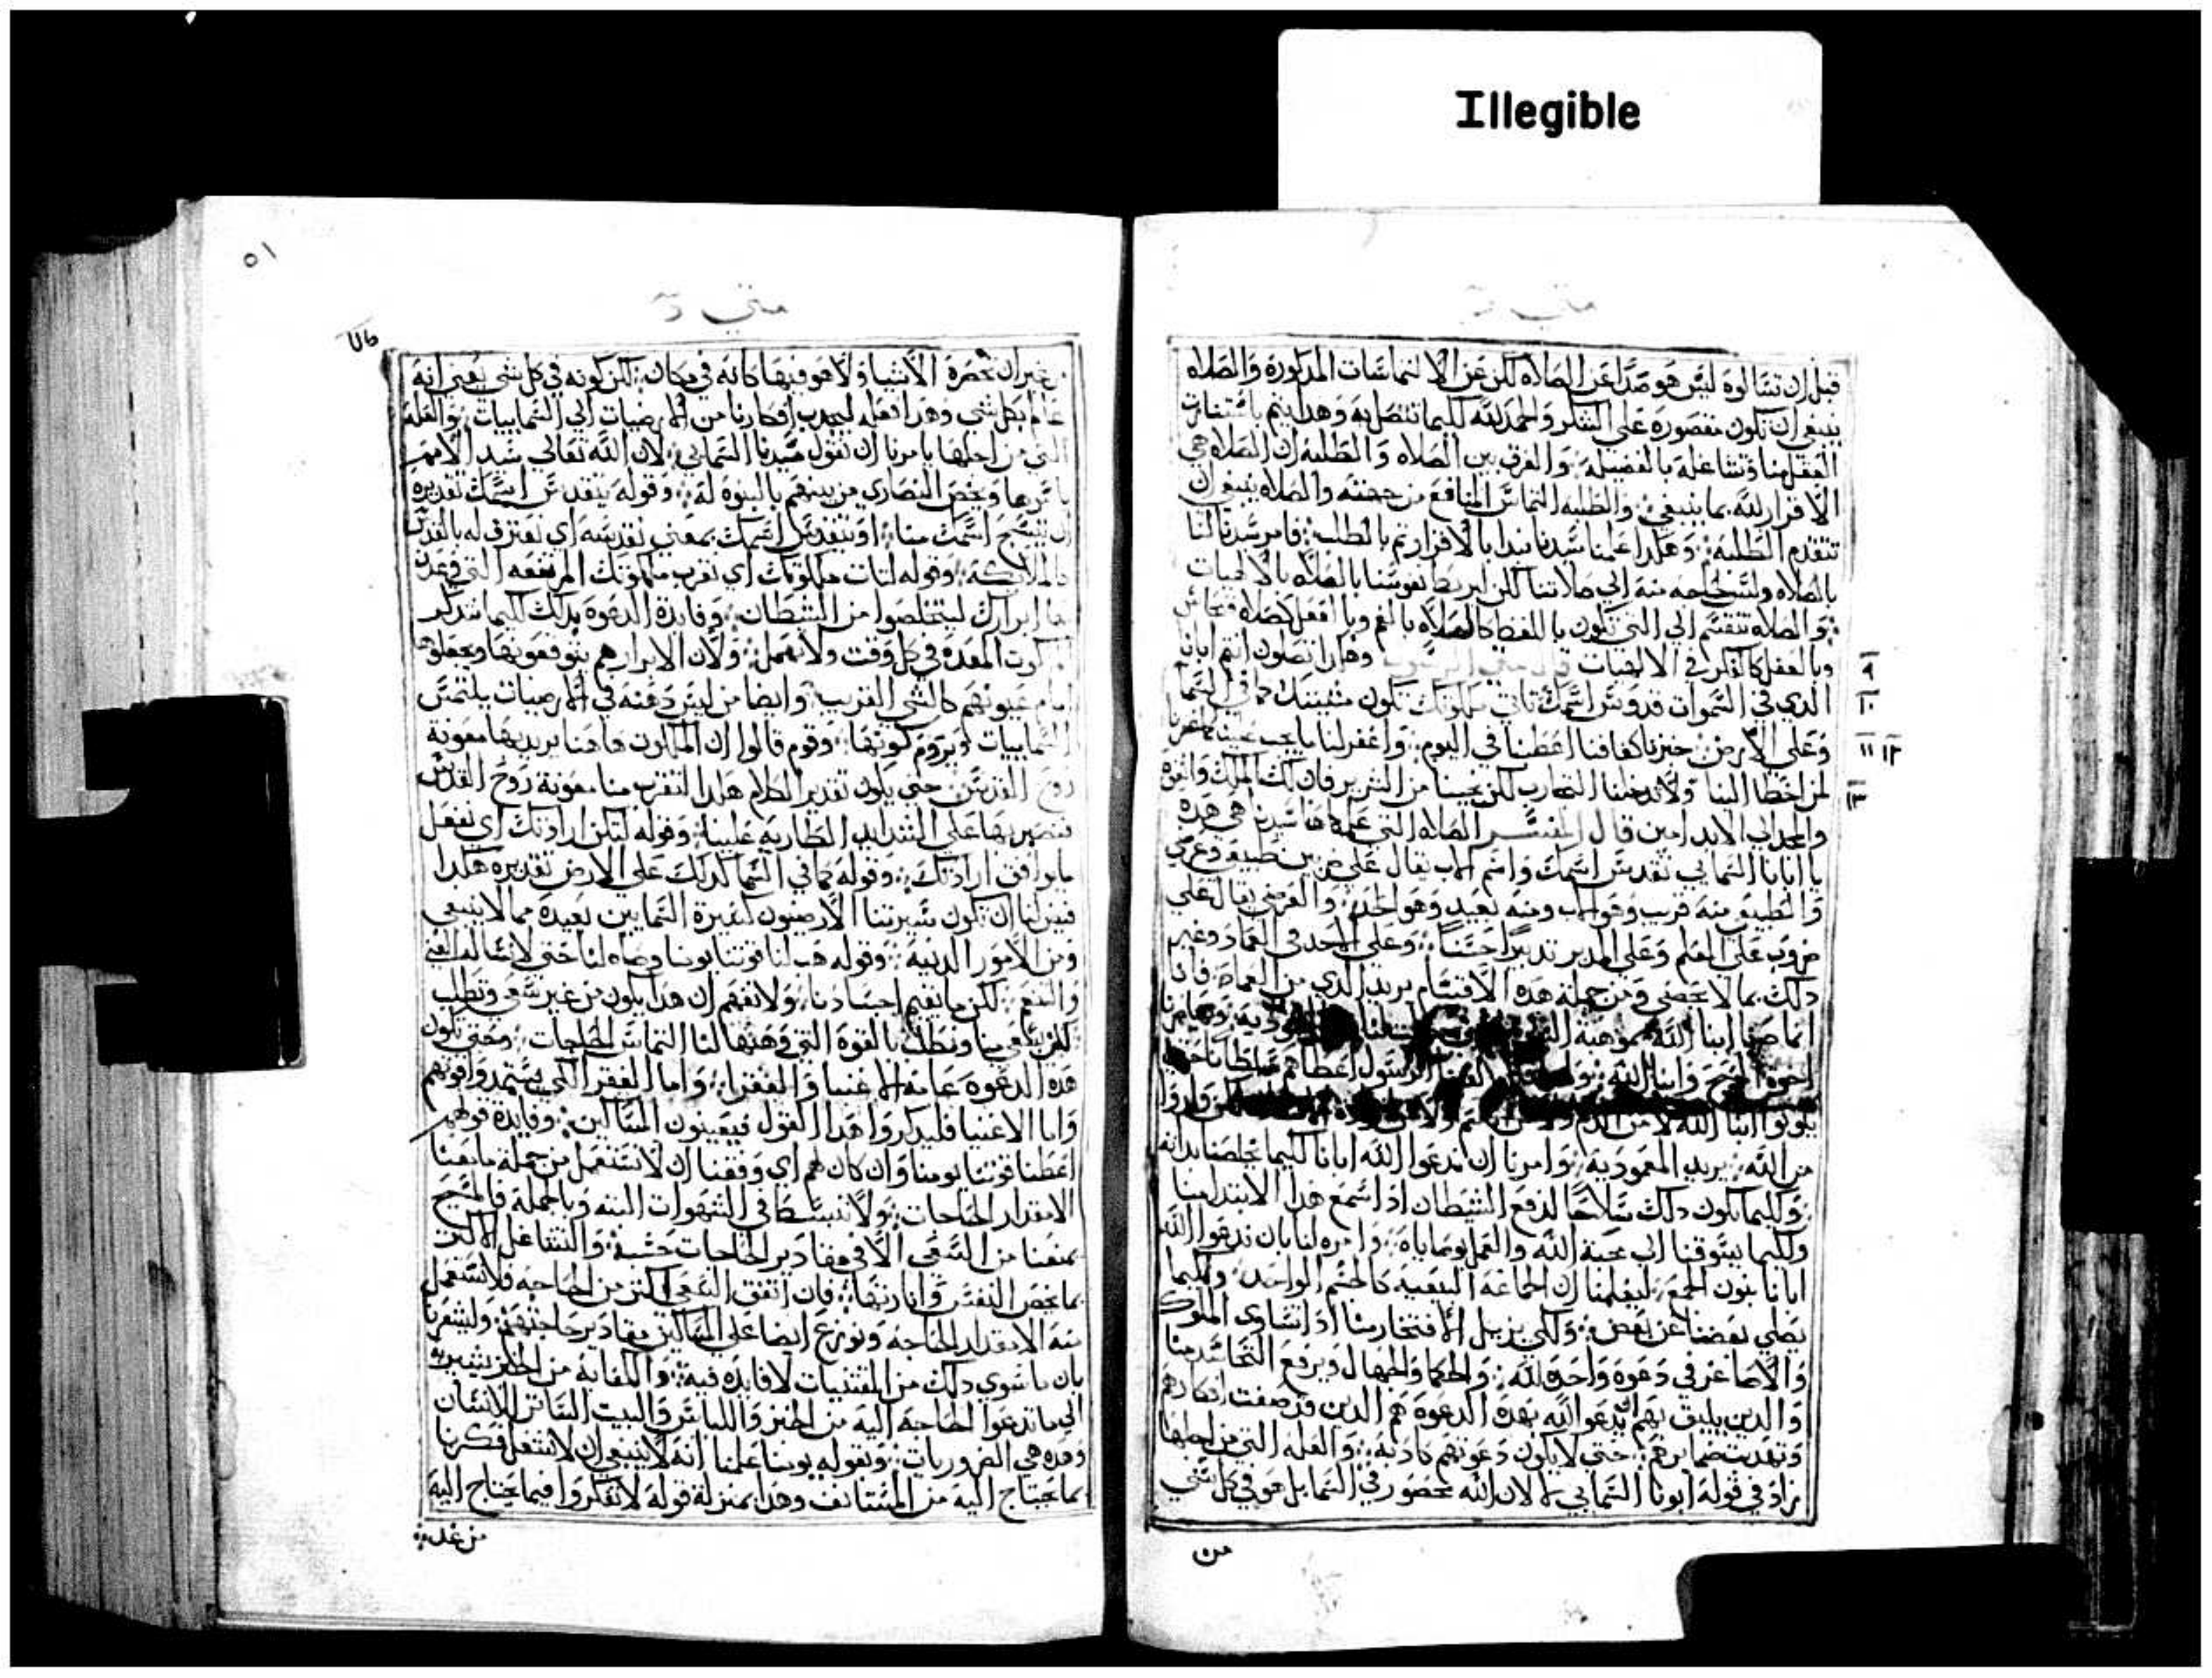 Illegible
متي
قبل ان تسالوه ليس هو صدا عن الصلاه لكن عن الالتماسات المذكورة والصلاه
ينبغي ان تكون مقصورة على الشكر والحمد لله كليما نتصل به وهدا يتم باستنارة
العقل منا وتشاغله بالفضيله والفرق بين الصلاه والطلبه ان الصلاه هي
الاقرار لله بما ينبغي والطلبه التماس المنافع من جهته والصلاه ينبغي ان
تتقدم الطلبه وهكدا علمنا سيدنا نبدا بالاقرار ثم بالطلب فامر سيدنا لنا
بالصلاه وليس لحاجه منه الي صلاتنا لكن ليربط نفوسنا بالصلاه بالالهيات
والصلاه تنقسم الي التي تكون باللفظ كالصلاه بالفم وبالفعل
وبالعقل كالفكر في الالهيات وهكدا تصلون انتم ابانا
الدي في السموات قدوس اسمك تاتي ملكوتك تكون مشيتك كما في السما
وعلى الارض خبزنا كفافنا اعطنا في اليوم واغفر لنا ما يجب علينا كما غفرنا
لمن اخطا الينا ولا تدخلنا التجارب لكن نجينا من الشرير فان لك الملك والقوه
والمجد الي الابد امين قال المفسر الصلاه التي علمناها سيدنا هي هده
يا ابانا السمايي تقدس اسمك واسم الاب يقال على ضربين طبيعي وعرضي
والطبيعي منه قريب وهو الاب ومنه بعيد وهو الجد والعرضي يقال علي
ضروب على المعلم وعلى المدبر تدبيرا حسنا وعلى الجد في العماد وغير
دلك بما لا يحصي ومن جملة هده الاقسام يريد الدي من العماد فانا
انما صرنا ابنا الله بموهبة
اخوة المسيح وابنا الله الرسول اعطاهم سلطانا حتي
يكونوا ابنا الله لا من الدم ولدوا
من الله يريد المعمودية وامرنا ان ندعوا الله ابانا كليما يخلصنا بدانه
وكليما يكون دلك سلاحا لدفع الشيطان ادا سمع هدا الابتدا منا
وكليما يشوقنا الي محبة الله والعمل بوصاياه وامره لنا بان ندعوا الله
ابانا بنون الجمع ليعلمنا ان الجماعه البيعيه كالجسم الواحد وكليما
يصلي بعضنا عن بعض ولكي يزيل الافتخار منا ادا تساوي الملوك
والاصاغر في دعوة واحده لله والحكما والجهال ويرفع التحاسد منا
والدين يليق بهم ان يدعوا الله بهده الدعوة هم الدين قد صفت افكارهم
وتهدبت ضمايرهم حتي لا يكون دعوتهم كادبة والعله التي من اجلها
زاد في قوله ابونا السمايي لا لان الله محصور في السما بل هو في كل شي
من
٩
١٠
١١ ١٢
١٣
٥١
متي
من غير ان تحصرة الاشيا ولا هو فيها كانه في مكان لكن كونه في كل شي يعني انه
عالم بكل شي وهدا فعله ليجدب افكارنا من الارضيات الي السماييات والعله
التي من اجلها يامرنا ان نقول سيدنا السمايي لان الله تعالي سيد الامم
باسرها وخص النصاري من بينهم بالبنوه له وقوله يتقدس اسمك تقديره
ان يتسبح اسمك منا او يتقدس اسمك بمعني نقدسه اي نعترف له بالقدس
كالملايكة وقوله لتات ملكوتك اي تقرب ملكوتك المرتفعه التي وعدت
بها ابرارك ليتخلصوا من الشيطان وفايدة الدعوة بدلك كليما نتدكر
المعدة في كل وقت ولا نهمل ولان الابرار هم يتوقعونها ويجعلوها
امام عيونهم كالشي القريب وايضا من ليس دهنه في الارضيات يلتمس
السماييات ويروم كونها وقوم قالوا ان الملكوت هاهنا يريد بها معونة
روح القدس حتي يكون تقدير الكلام هكدا لتقرب منا معونة روح القدس
فنصبر بها على الشدايد الطاريه علينا وقوله لتكن ارادتك اي نفعل
ما يوافق ارادتك وقوله كما في السما كدلك على الارض تقديره هكدا
ان تكون سيرتنا الارضيون كسيرة السمايين بعيدة مما لا ينبغي
ومن الامور الدنيه وقوله هب لنا قوتنا يومنا وصاه لنا حتي لا نساله الغني
والتنعم لكن ما نقيم اجسادنا ولا نفهم ان هدا يكون من غير سعي وتطلب
لكن بسعي منا ونطلب بالقوة التي وهبها لنا التماس الحاجات ومعني يكون
هده الدعوه عامة للاغنيا والفقرا واما الفقرا لكي يستمدوا قوتهم
واما الاغنيا فليدكروا هدا القول فيعينون المساكين وفايدة قولهم
اعطنا قوتنا يومنا وان كان لهم اي وفقنا ان لا نستعمل من جملة ما معنا
الا مقدار الحاجات ولا ننبسط في الشهوات البته وبالجملة فالمسيح
يمنعنا من السعي الا في مقادير الحاجات حسب والتشاغل الاكثر
بما يخص النفس وانارتها فان اتفق السعي اكثر من الحاجه فلا نستعمل
منه الا مقدار الحاجه ونوزع ايضا على المساكين مقادير حاجتهم وليشعرنا
بان ما سوي دلك من المقتنيات لا فايده فيه والكفاية من الخبز يشير به
الي ما تدعوا الحاجة اليه من الخبز واللباس والبيت الساتر للانسان
وهده هي الضروريات وبقوله يومنا علمنا انه لا ينبغي ان لا نشغل فكرنا
بما نحتاج اليه من المستانف وهدا بمنزلة قوله لا تفكروا فيما يحتاج اليه
من غد